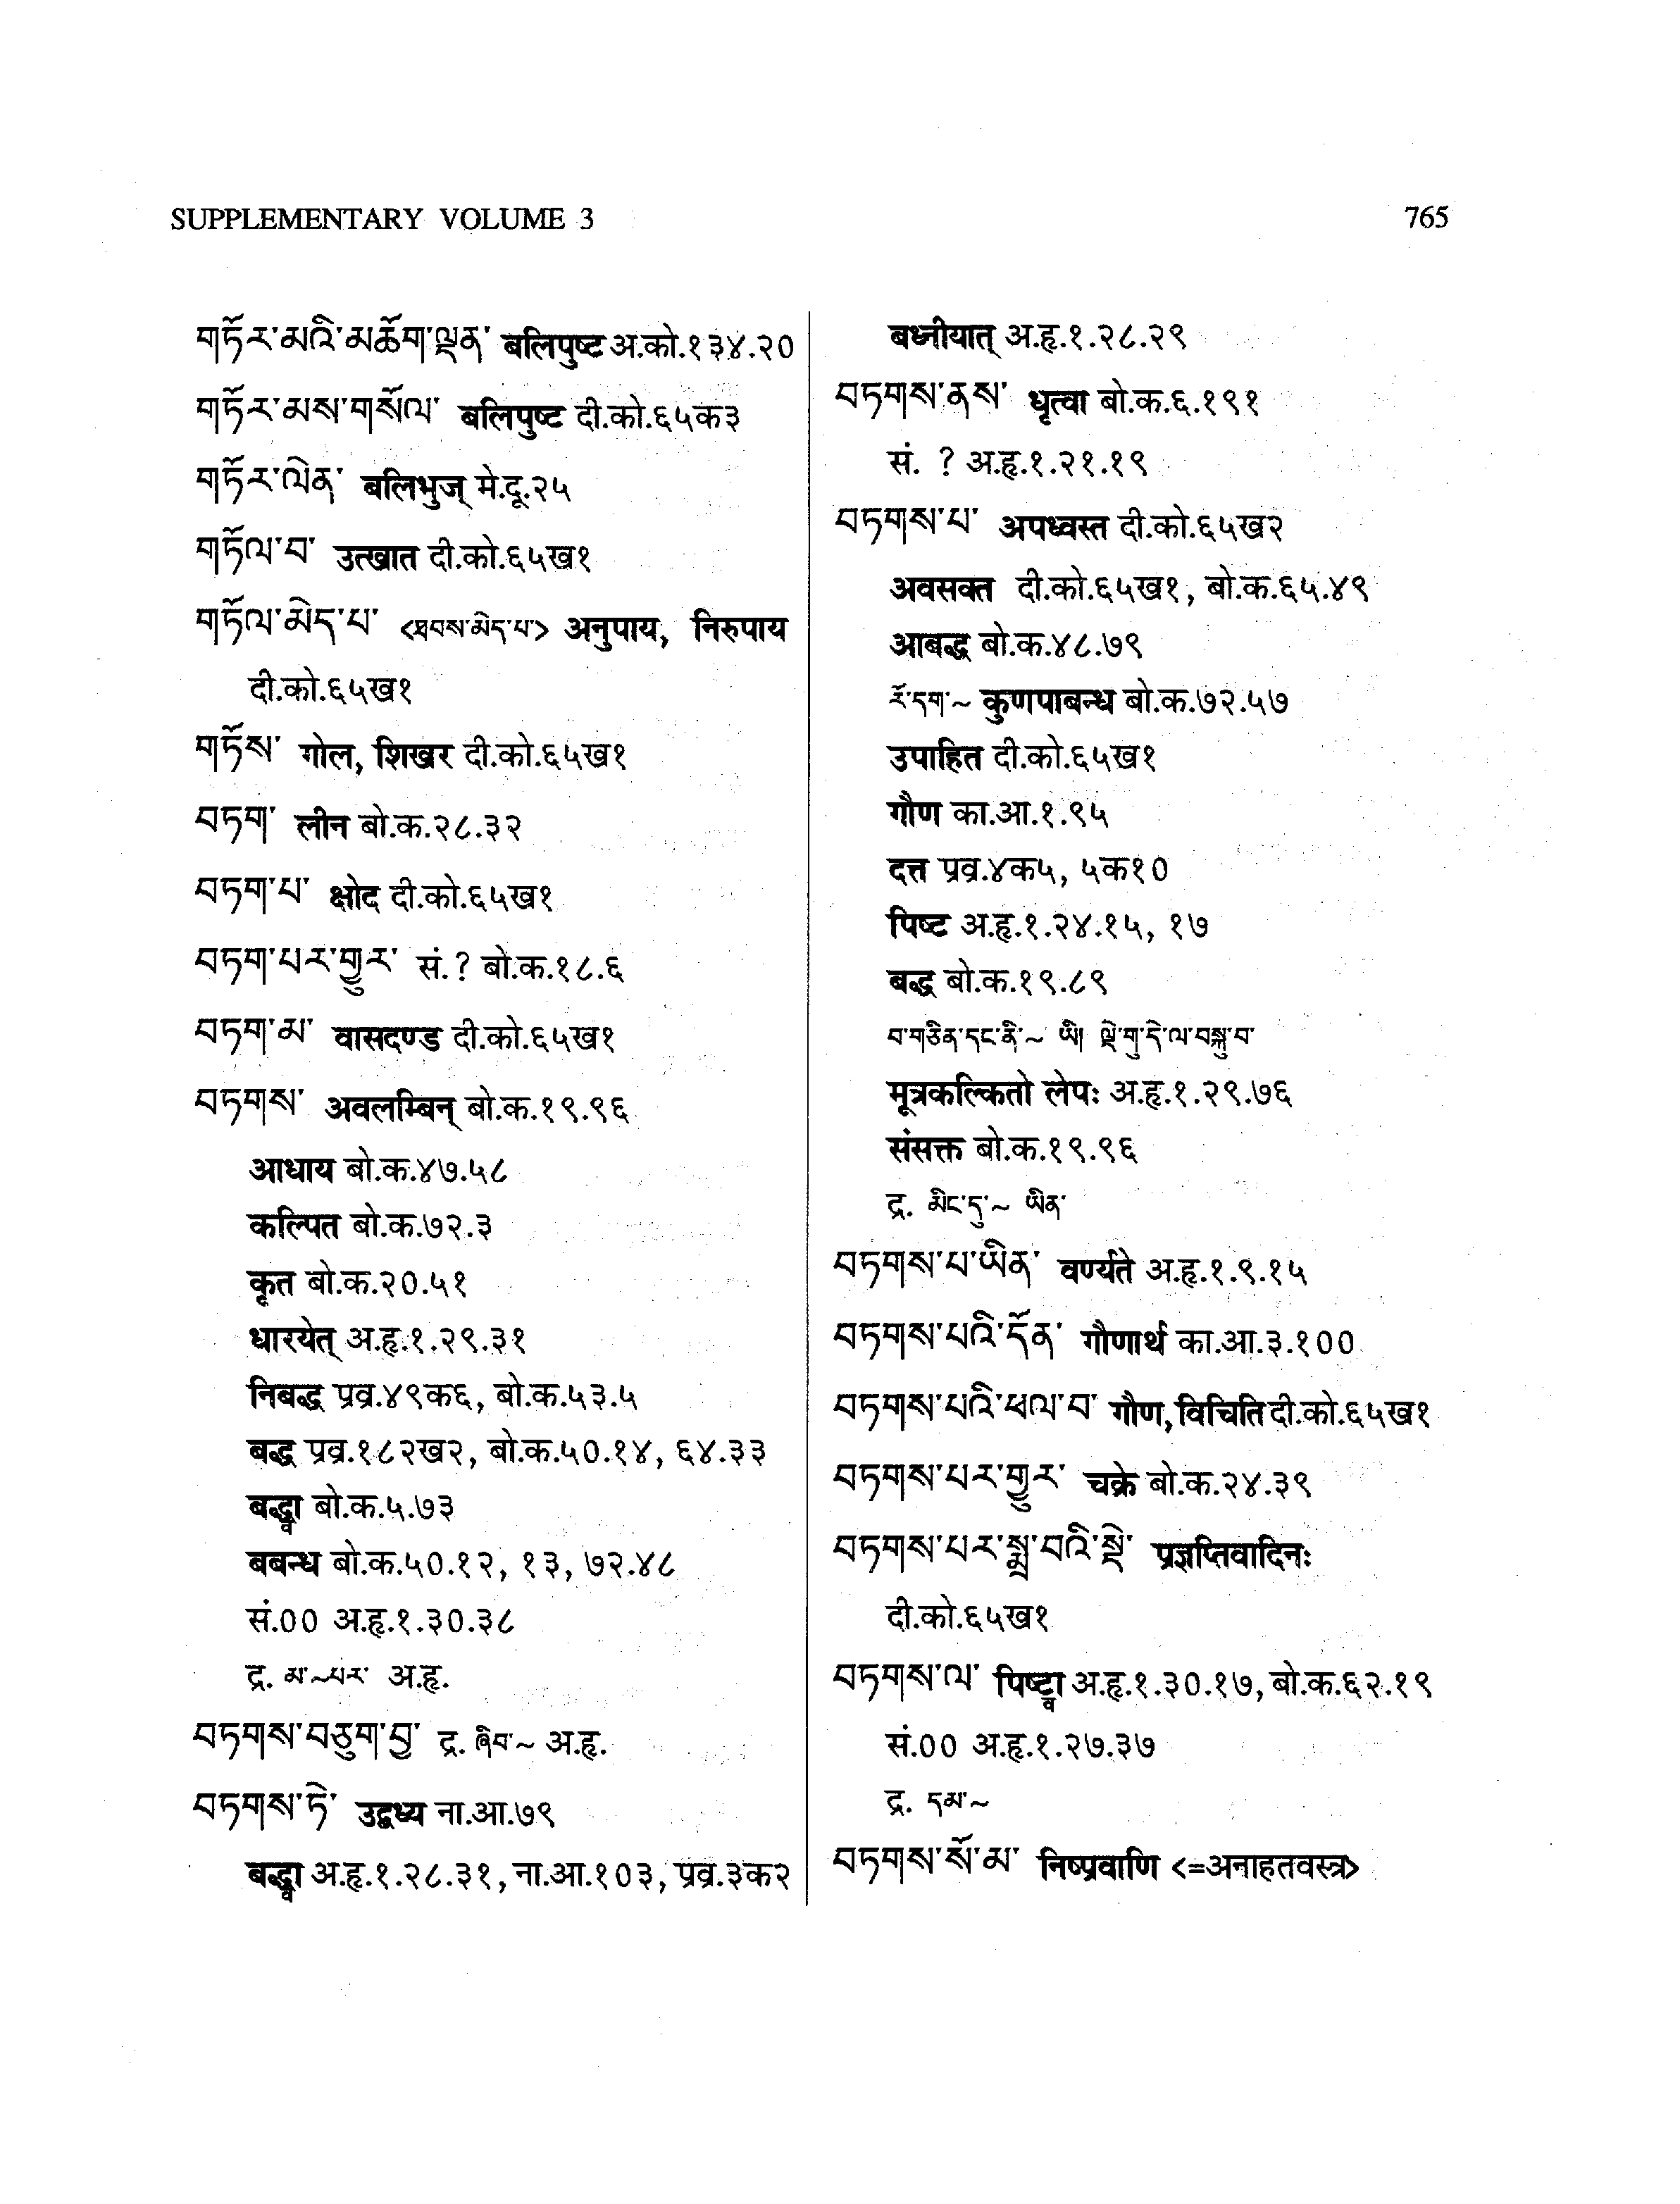 SUPPLEMENTARY VOLUME 3
765
གཏོར་མའི་མཆོག་ལྡན་ बलिपुष्ट अ.को.१३४.२०
གཏོར་མས་གསོལ་ बलिपुष्ट दी.को.६५क३
གཏོར་ལེན་ बलिभुज् मे.दू.२५
གཏོལ་བ་ उत्खात दी.को.६५ख१
གཏོལ་མེད་པ་ <ཐབས་མེད་པ་> अनुपाय, निरुपाय
दी.को.६५ख१
གཏོས་ गोल, शिखर दी.को.६५ख१
བཏག་ लीन बो.क.२८.३२
བཏག་པ་ क्षोद दी.को.६५ख१
བཏག་པར་གྱུར་ सं.? बो.क.१८.६
བཏག་མ་ वासदण्ड दी.को.६५ख१
བཏགས་ अवलम्बिन् बो.क.१९.९६
आधाय बो.क.४७.५८
कल्पित बो.क.७२.३
कृत बो.क.२०.५१
धारयेत् अ.हृ.१.२९.३१
निबद्ध प्रव्र.४९क६, बो.क.५३.५
बद्ध प्रव्र.१८२ख२, बो.क.५०.१४, ६४.३३
बद्ध्वा बो.क.५.७३
बबन्ध बो.क.५०.१२, १३, ७२.४८
सं.०० अ.हृ.१.३०.३८
द्र. མ་~པར་ अ.हृ.
བཏགས་བཅུག་བྱ་ द्र. ཞིབ་~ अ.हृ.
བཏགས་ཏེ་ उद्बध्य ना.आ.७९
बद्ध्वा अ.हृ.१.२८.३१, ना.आ.१०३, प्रव्र.३क२
बध्नीयात् अ.हृ.१.२८.२९
བཏགས་ནས་ धृत्वा बो.क.६.१९१
सं. ? अ.हृ.१.२१.१९
བཏགས་པ་ अपध्वस्त दी.को.६५ख२
अवसक्त दी.को.६५ख१, बो.क.६५.४९
आबद्ध बो.क.४८.७९
རོ་དག་~ कुणपाबन्ध बो.क.७२.५७
उपाहित दी.को.६५ख१
गौण का.आ.१.९५
दत्त प्रव्र.४क५, ५क१०
पिष्ट अ.हृ.१.२४.१५, १७
बद्ध बो.क.१९.८९
བ་གཅིན་དང་ནི་~ ཡི། ལྡེ་གུ་དེ་ལ་བསྐུ་བ་
मूत्रकल्कितो लेपः अ.हृ.१.२९.७६
संसक्त बो.क.१९.९६
द्र. མིང་དུ་~ ཡིན་
བཏགས་པ་ཡིན་ वर्ण्यते अ.हृ.१.९.१५
བཏགས་པའི་དོན་ गौणार्थ का.आ.३.१००
བཏགས་པའི་ཕལ་བ་ गौण, विचिति दी.को.६५ख१
བཏགས་པར་གྱུར་ चक्रे बो.क.२४.३९
བཏགས་པར་སྨྲ་བའི་སྡེ་ प्रज्ञप्तिवादिनः
दी.को.६५ख१
བཏགས་ལ་ पिष्ट्वा अ.हृ.१.३०.१७, बो.क.६२.१९
सं.०० अ.हृ.१.२७.३७
द्र. དམ་~
བཏགས་སོ་མ་ निष्प्रवाणि <=अनाहतवस्त्र>